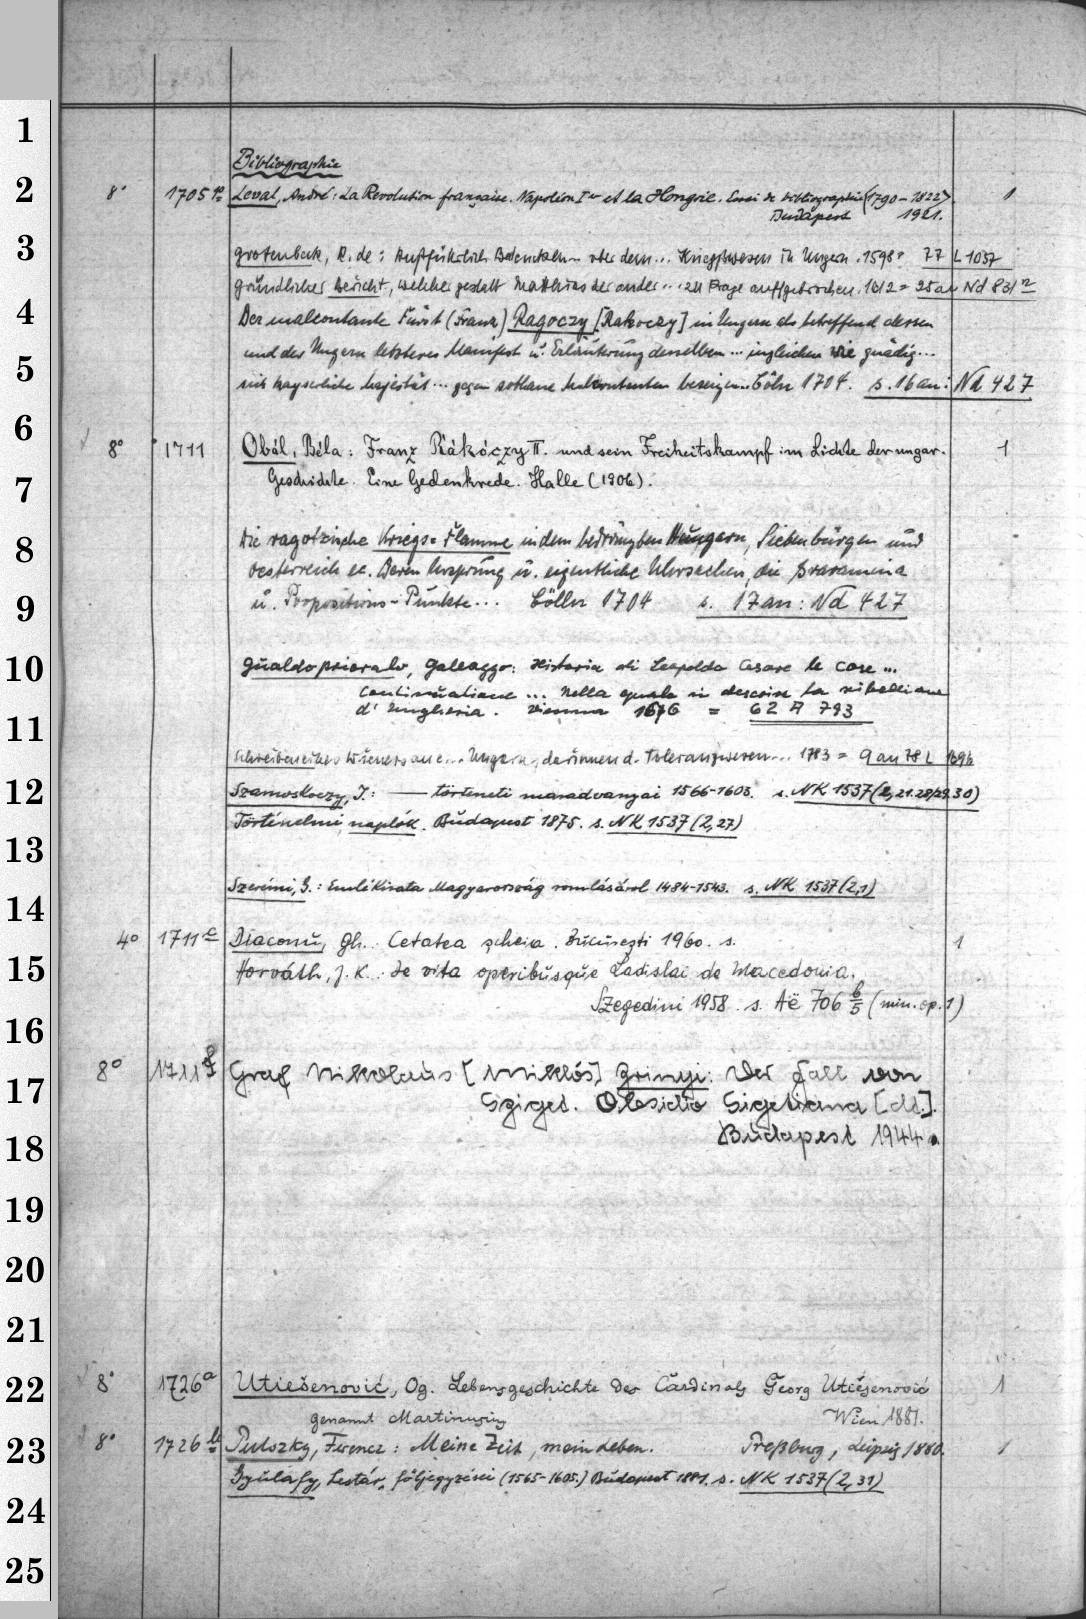 1
2
3
4
5
6
7
8
9
10
11
12
13
14
15
16
17
18
19
20
21
22
23
24
25
Bibliographie
8° 1705 Leval, André: La Revolution française. Napoléon Ier et la Hongrie. Essai de bibliographie (1790-1822). 1
Budapest 1921.
Grotenbeck, R. de: Außführlich Bedencken ober dem... Kriegßwesen in Ungern. 1598: 77 L 1037
Gründlicher Bericht, welcher gestalt Matthias der ander... zu Prage auffgebrochen. 1612 = 25 an Nd 831
Der malcontante Fürst (Franz) Ragoczy [Rakoczy] in Ungern als betreffend dessen
und der Ungern letzteres Manifest u. Erläuterung desselben... ingleichen wie gnädig...
kayserliche Majestät... gegen Cöln 1704. s. 16 an: Nd 427
8° 1711 Obál, Béla: Franz Rákóczy II. und sein Freiheitskampf im Lichte der ungar. 1
Geschichte. Eine Gedenkrede. Halle (1906).
Die ragotzische Kriegs-Flamme in dem bedrängten Hungern, Siebenbürgen und
Oesterreich etc. Deren Ursprung u. eigentliche Uhrsachen, die Gravamina
u. Propositions-Punkte... Cölln 1704 s. 17 an: Nd 427
Gualdo priorato, Galeazzo: Historia di Leopoldo Cesare le cose...
Continuatione... Nella quale si descrive la ribellione
d'Ungheria. Vienna 1676 = 62 A 793
Schreiben eines Wieners an e... Ungern, darinnen d. Toleranzwesen... 1783 = 9 an 78 L 1396
Szamosközy, I.: — történeti maradványai 1566-1603. s. NK 1537 (2, 21.28/29.30)
Történelmi naplók. Budapest 1875. s. NK 1537 (2,27)
Szerémi, G.: Emlékirata Magyarország romlásáról 1484-1543. s. NK 1537 (2,1)
4° 1711 e Diaconu, Gh.: Cetatea Şcheia. Bucureşti 1960. s. 1
Horváth, J. K.: De vita operibusque Ladislai de Macedonia.
Szegedini 1958. s. Aë 706 b/5 (min. op. 1)
8° 1711 f Graf Nikolaus [Miklós] Zrinyi: Der Fall von
Sziget. Obsidio Sigetiana [dt.].
Budapest 1944.
8° 1726a Utiešenović, Og. Lebensgeschichte des Cardinals Georg Utiešenović 1
genannt Martinusius Wien 1881.
8° 1726 b Pulszky, Ferencz: Meine Zeit, mein Leben. Preßburg, Leipzig 1880. 1
Gyulafy, Lestár, följegyzései (1565-1605.) Budapest 1881. s. NK 1537 (2,31)